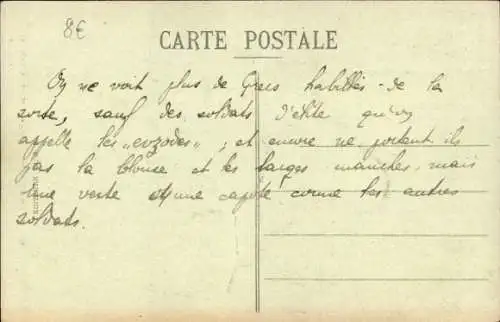 8€
CARTE POSTALE
On ne voit plus de Grecs habillés de la
sorte, sauf des soldats d'élite qu'on
appelle les „evzodes"; et encore ne portent ils
pas la blouse et les larges manches, mais
une veste et une capote comme les autres
soldats.